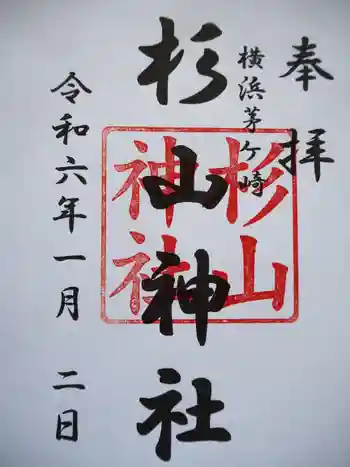 奉拝
横浜茅ケ崎
杉山神社
杉山神社
令和六年一月 二日